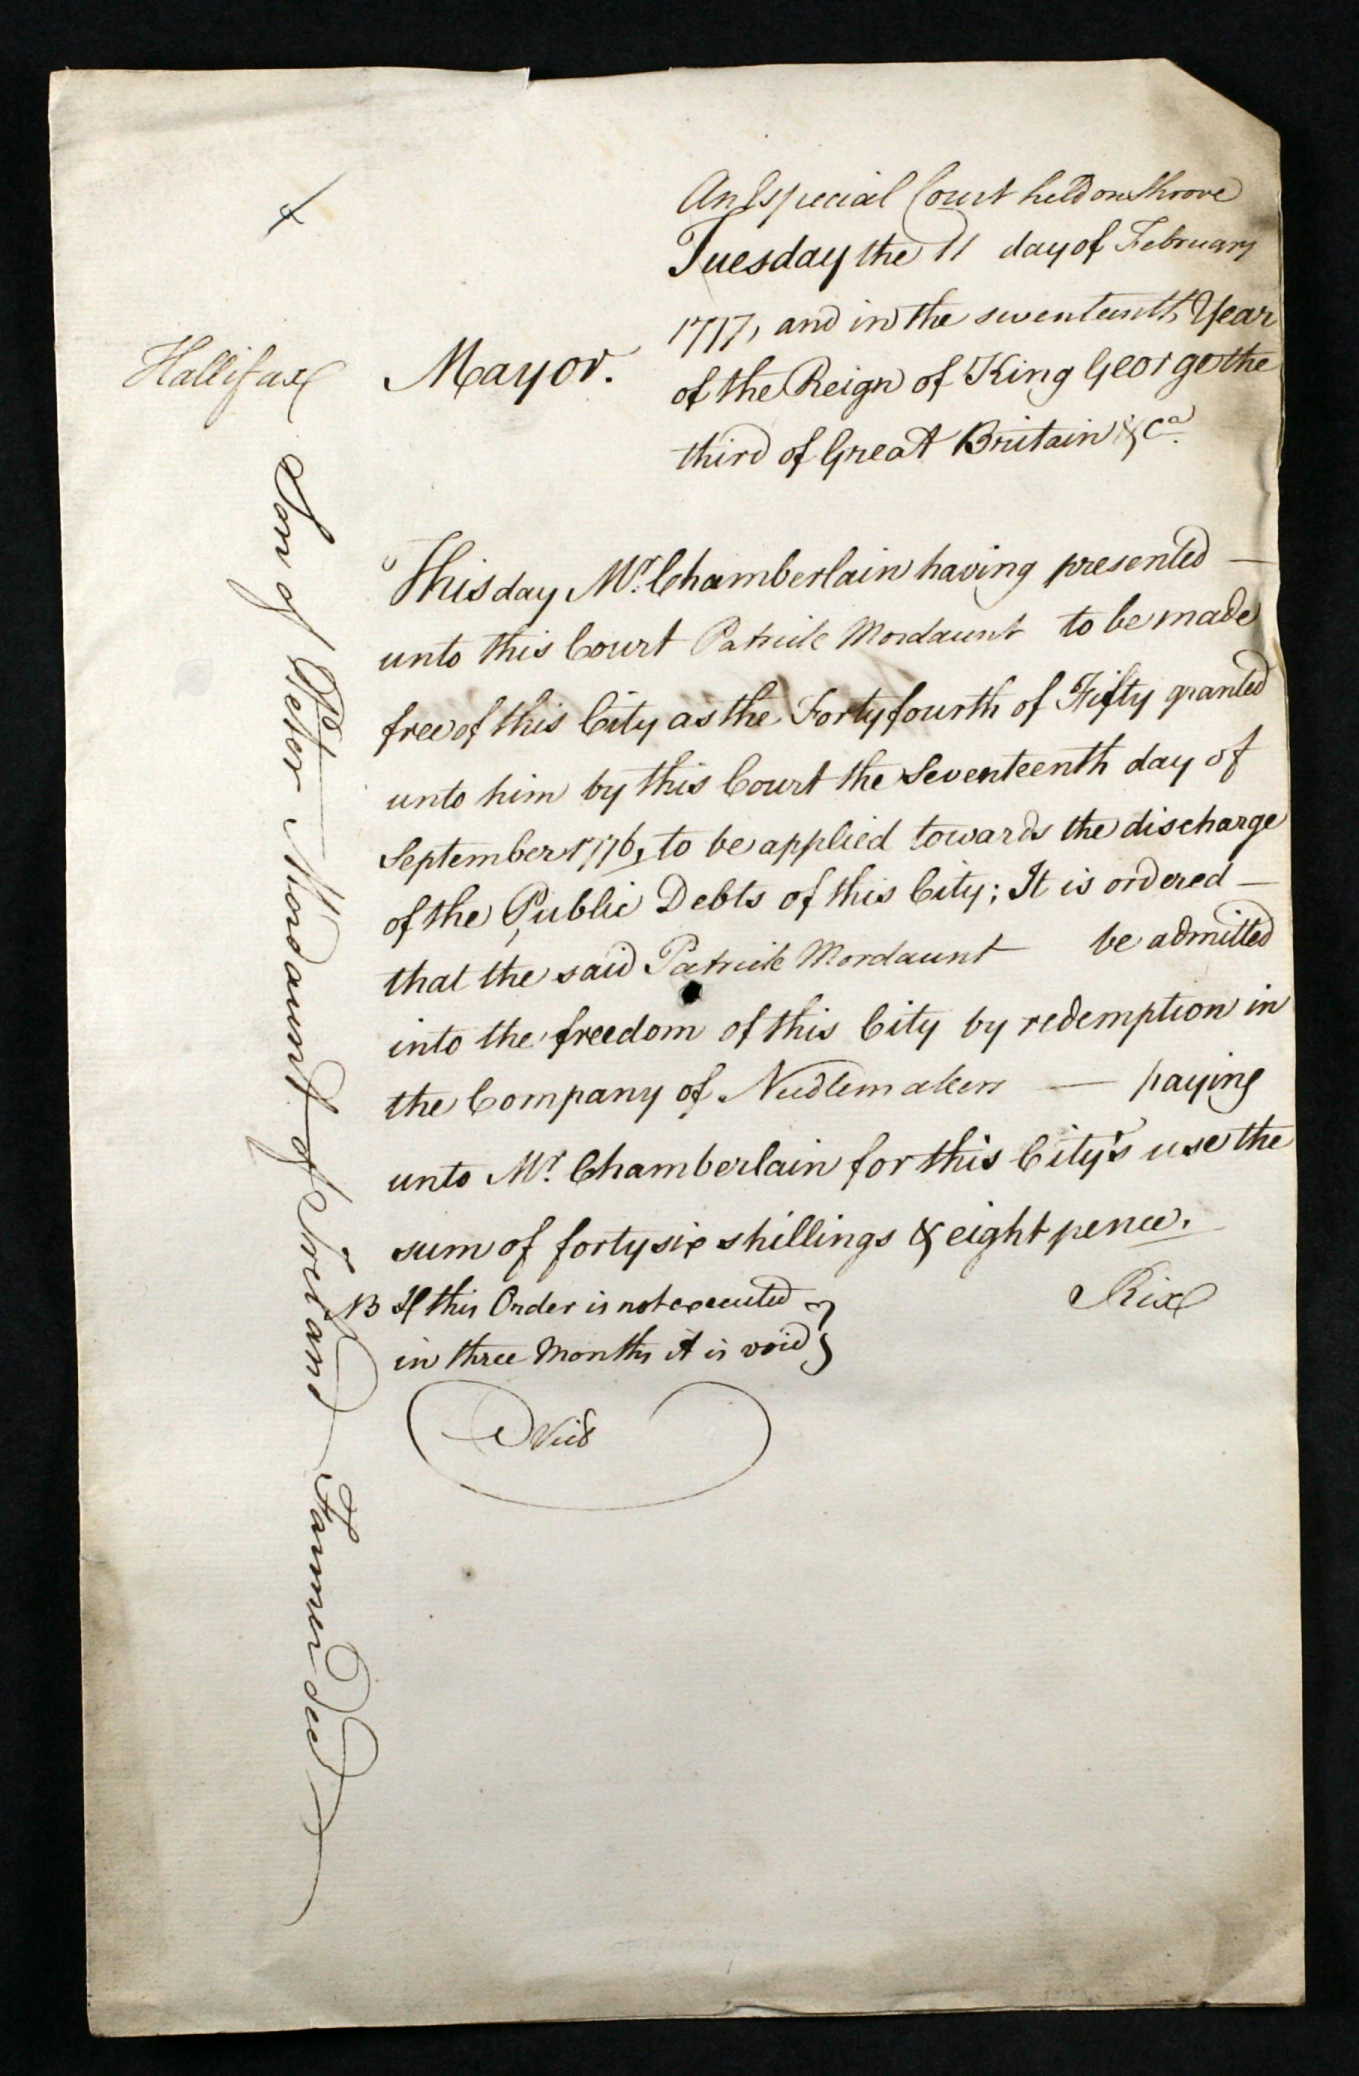 An Especial Court held on Shrove
Tuesday the 11 day of February
1777, and in the seventeenth Year
of the Reign of King George the
third of Great Britain &Ca.
Hallifax Mayor.
This day Mr. Chamberlain having presented —
unto this Court Patrick Mordaunt to be made
free of this City as the Forty fourth of Fifty granted
unto him by this Court the Seventeenth day of
September 1776, to be applied towards the discharge
of the Public Debts of this City; It is ordered —
that the said Patrick Mordaunt be admitted
into the freedom of this City by redemption in
the Company of Needlemakers — paying
unto Mr. Chamberlain for this City's use the
sum of forty six shillings & eight pence.
Rix
NB If this Order is not executed
in three Months it is void
Son of Peter Mordaunt of Ireland Farmer decd